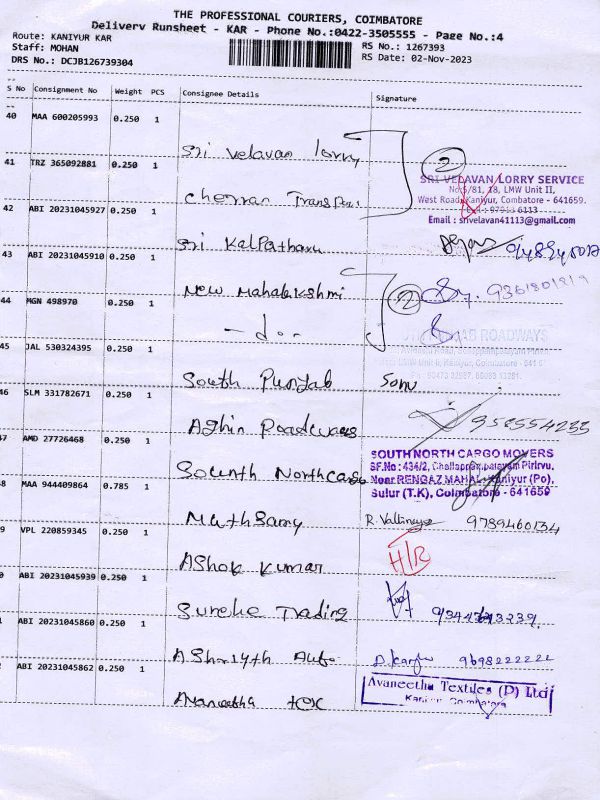 THE PROFESSIONAL COURIERS, COIMBATORE
Delivery Runsheet - KAR - Phone No.:0422-3505555 - Page No.:4
Route: KANIYUR KAR
RS No.: 1267393
Staff: MOHAN
RS Date: 02-Nov-2023
DRS No.: DCJB126739304
S No Consignment No Weight PCS Consignee Details Signature
40 MAA 600205993 0.250 1
Sri Velavan lorry
2
41 TRZ 365092881 0.250 1
Cheran Transport
SRI VELAVAN LORRY SERVICE
No.5/81, 18, LMW Unit II,
West Road, Kaniyur, Combatore - 641659.
Email : srivelavan41113@gmail.com
42 ABI 20231045927 0.250 1
Sri Kalpatharu
43 ABI 20231045910 0.250 1
New Mahalakshmi
2
9361801819
44 MGN 498970 0.250 1
- do -
ROADWAYS
45 JAL 530324395 0.250 1
South Punjab
Sonu
46 SLM 331782671 0.250 1
Aghin Roadways
47 AMD 27726468 0.250 1
South North cargo
SOUTH NORTH CARGO MOVERS
SF.No : 434/2, Chellappampalayam Pirivu,
Near RENGAZ MAHAL, Kaniyur (Po),
Sulur (T.K), Coimbatore - 641659
8 MAA 944409864 0.785 1
Muthsamy
R. Vallinayu 9789460134
9 VPL 220859345 0.250 1
Ashok Kumar
H/R
0 ABI 20231045939 0.250 1
Sureke Trading
1 ABI 20231045860 0.250 1
Ashriyth Auto
9698222222
2 ABI 20231045862 0.250 1
Avaneetha tex
Avaneetha Textiles (P) Ltd
Kaniyur, Coimbatore